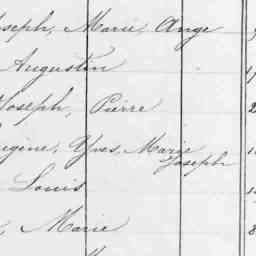 Joseph, Marie, Ange
Augustin
Joseph, Pierre
Eugène, Yves, Marie
Joseph
Louis
Marie